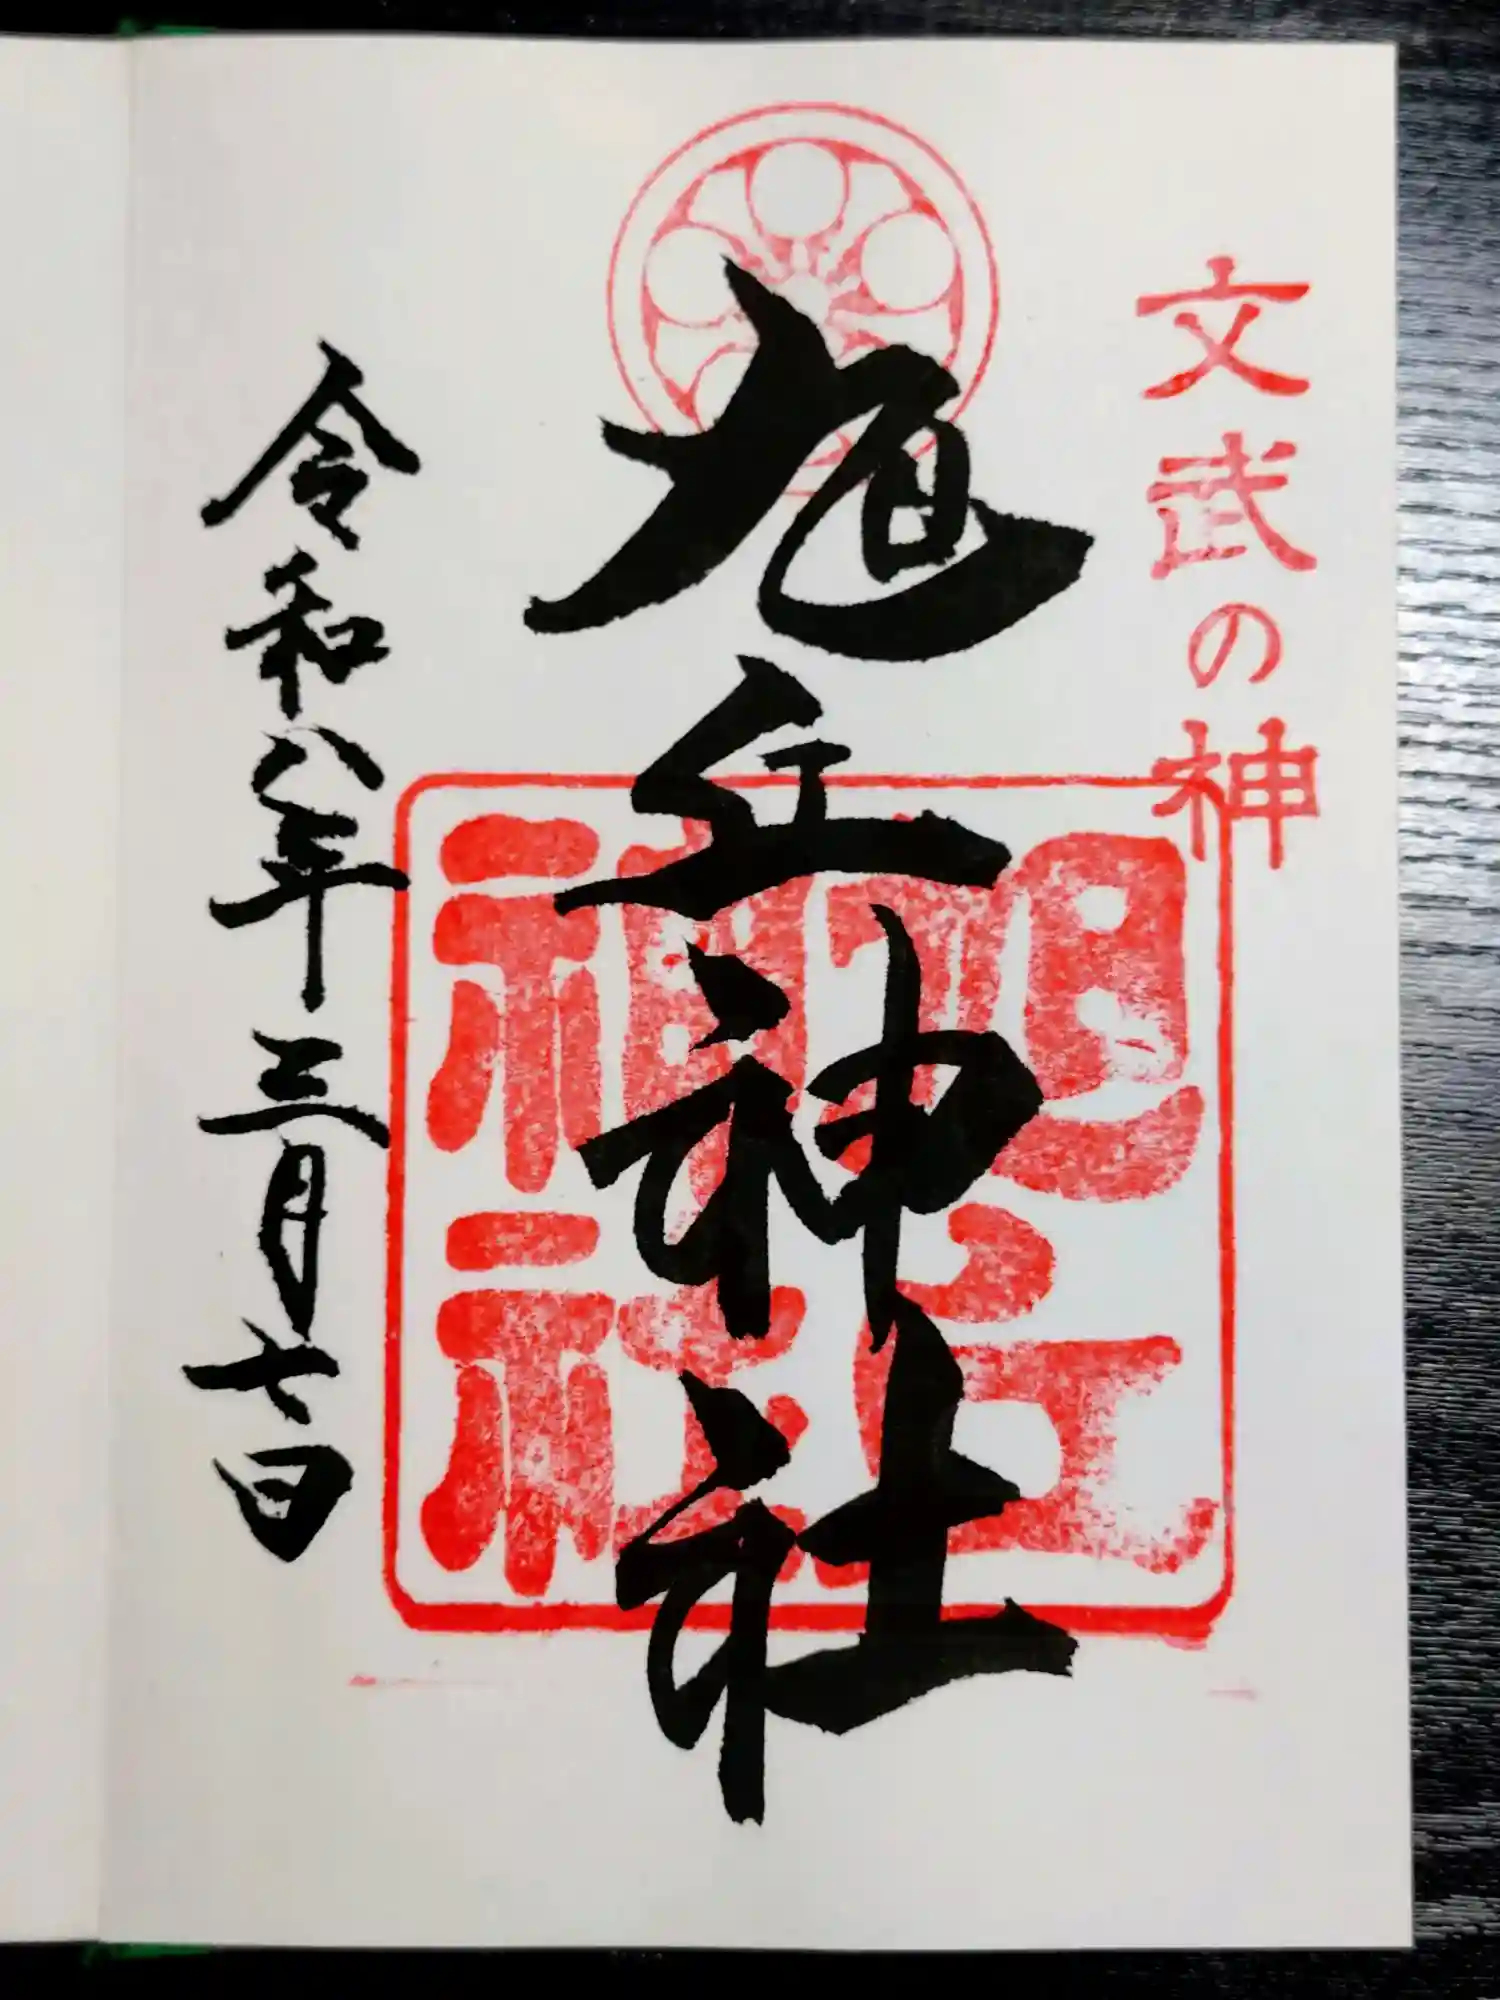 文武の神
旭丘神社
旭丘神社
令和八年三月七日